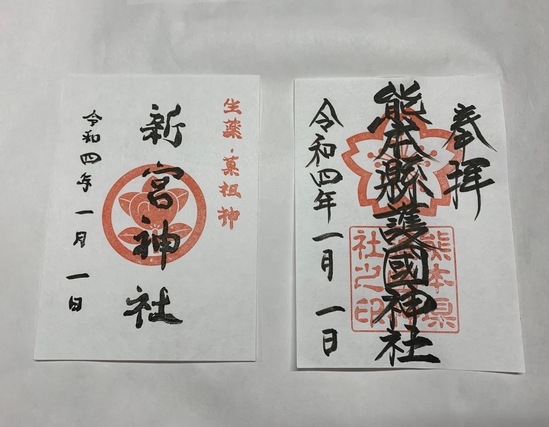 奉拝
熊本縣護國神社
熊本県
社之印
令和四年一月一日
生薬・菓祖神
新宮神社
令和四年一月一日